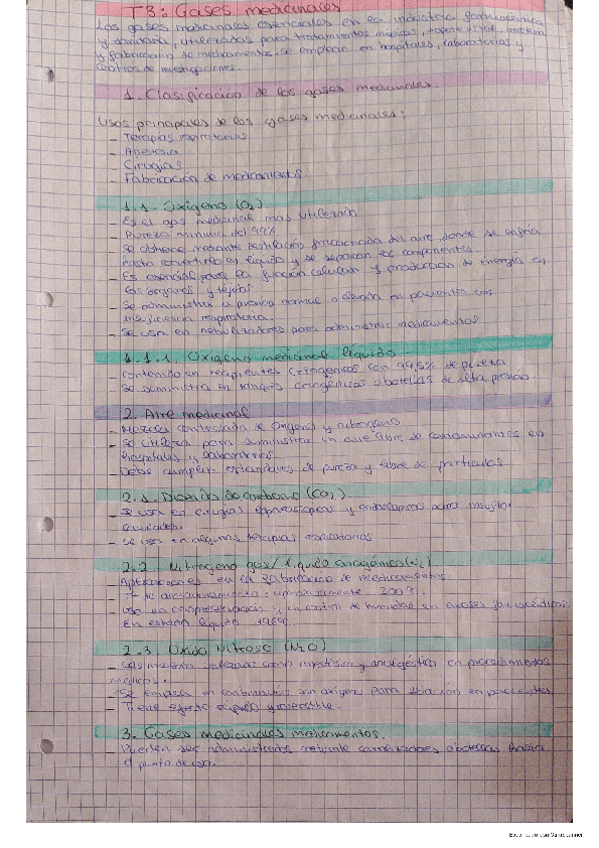 T3: Gases medicinales
Los gases medicinales esenciales en la industria farmacéutica
y sanitaria, utilizados para tratamientos médicos, soporte vital, anestesia
y fabricación de medicamentos. Se emplean en hospitales, laboratorios y
centros de investigaciones.
1. Clasificacio de los gases medicinales.
Usos principales de los gases medicinales:
- Terapias respiratorias
- Anestesia
- Cirugías
- Fabricación de medicamentos
1.1. Oxígeno (O2).
- Es el gas medicinal más utilizado
- Pureza mínima del 99%
- Se obtiene mediante destilación fraccionada del aire, donde se enfría
hasta convertirlo en líquido y se separan los componentes
- Es esencial para la función celular y producción de energía en
los órganos y tejidos
- Se administra a presión normal o elevada en pacientes con
insuficiencia respiratoria.
- Se usa en nebulizadores para administrar medicamentos
1.1.1. Oxígeno medicinal líquido.
- Contenido en recipientes criogénicos con 99,5% de pureza
- Se suministra en tanques criogénicos o botellas de alta presión.
2. Aire medicinal
- Mezcla controlada de oxígeno y nitrógeno
- Se utiliza para suministrar un aire libre de contaminantes en
hospitales y laboratorios
- Debe cumplir estándares de pureza y libre de partículas
2.1. Dióxido de carbono (CO2).
- Se usa en cirugías laparoscópicas y endoscópicas para insuflar
cavidades.
- Se usa en algunas terapias respiratorias
2.2. Nitrógeno gas/líquido criogénico (N2)
- Aplicaciones en la fabricación de medicamentos
- Tª de almacenamiento: aproximadamente
- Usa en criopreservación y en control de humedad en envases farmacéuticos.
En estado líquido
2.3. Óxido Nitroso (N2O)
- Gas medicinal utilizado como anestésico y analgésico en procedimientos
médicos.
- Se emplea en combinación con oxígeno para sedación en pacientes
- Tiene efecto rápido y reversible.
3. Gases medicinales medicamentos.
- Pueden ser administrados mediante canalizadores o botellas hasta
el punto de uso.